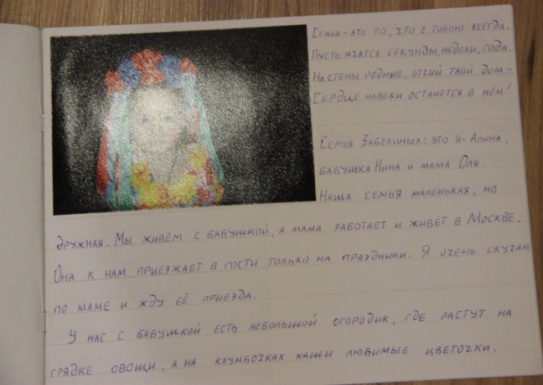 Семья - это то, что с тобою всегда.
Пусть мчатся секунды, недели, года.
Но стены родные, отчий твой дом -
Сердце навеки останется в нём!
Семья Забелиных: это я - Алина,
бабушка Нина и мама Оля.
Наша семья маленькая, но
дружная. Мы живём с бабушкой, а мама работает и живёт в Москве.
Она к нам приезжает в гости только на праздники. Я очень скучаю
по маме и жду её приезда.
У нас с бабушкой есть небольшой огородик, где растут на
грядке овощи, а на клумбочках наши любимые цветочки.